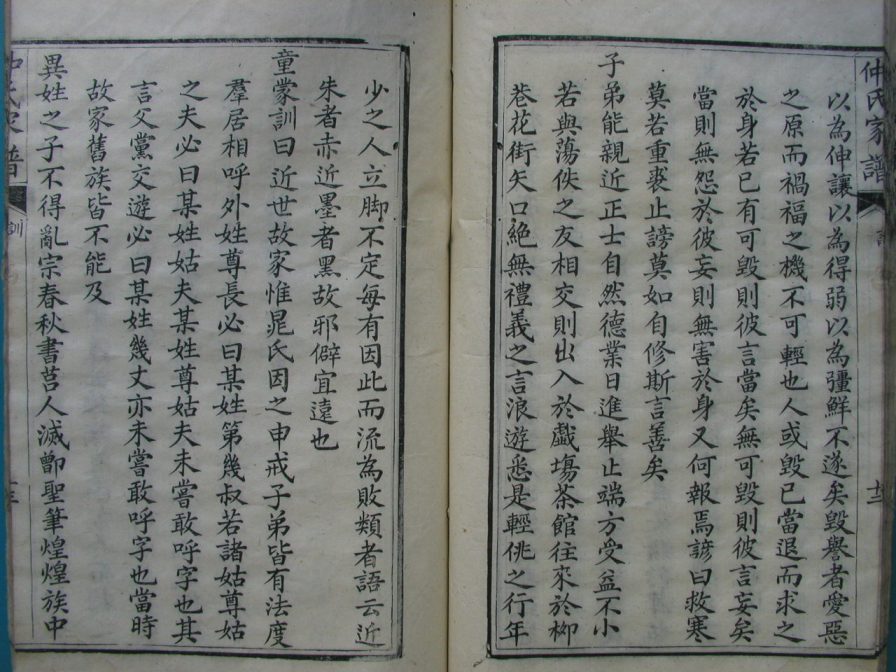 仲氏家譜
以為伸讓以為得弱以為彊鮮不遂矣毀譽者愛惡
之原而禍福之機不可輕也人或毀已當退而求之
於身若已有可毀則彼言當矣無可毀則彼言妄矣
當則無怨於彼妄則無害於身又何報焉諺曰救寒
莫若重裘止謗莫如自修斯言善矣
子弟能親近正士自然德業日進舉止端方受益不小
若與蕩佚之友相交則出入於戲塲茶館往來於柳
巷花街矢口絕無禮義之言浪遊悉是輕佻之行年
少之人立脚不定每有因此而流為敗類者語云近
朱者赤近墨者黑故邪僻宜遠也
童蒙訓曰近世故家惟晁氏因之申戒子弟皆有法度
羣居相呼外姓尊長必曰某姓第幾叔若諸姑尊姑
之夫必曰某姓姑夫某姓尊姑夫未嘗敢呼字也其
言父黨交遊必曰某姓幾丈亦未嘗敢呼字也當時
故家舊族皆不能及
異姓之子不得亂宗春秋書莒人滅鄫聖筆煌煌族中
氏家譜
訓
十三